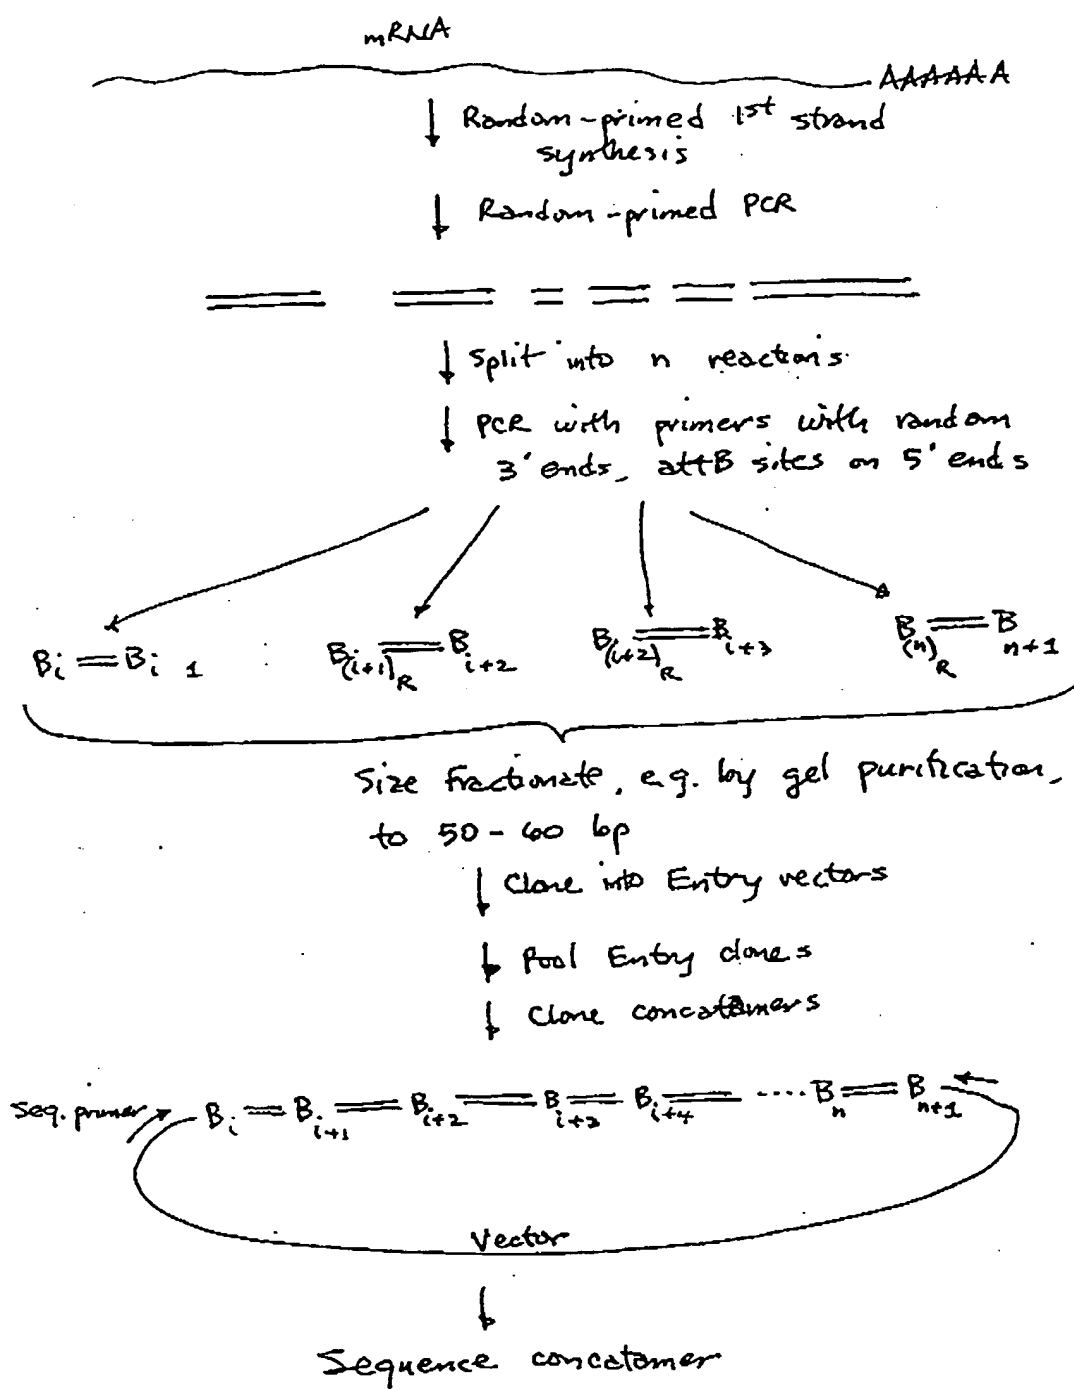 mRNA
AAAAAA
Random-primed 1st strand
synthesis
Random-primed PCR
Split into n reactions
PCR with primers with random
3' ends, attB sites on 5' ends
Bi = Bi 1 B(i+1)R = Bi+2 B(i+2)R = Bi+3 B(n)R = Bn+1
Size fractionate, e.g. by gel purification,
to 50-60 bp
Clone into Entry vectors
Pool Entry clones
Clone concatamers
Seq. primer Bi = Bi+1 = Bi+2 = Bi+3 = Bi+4 = .... Bn = Bn+1
Vector
Sequence concatamer